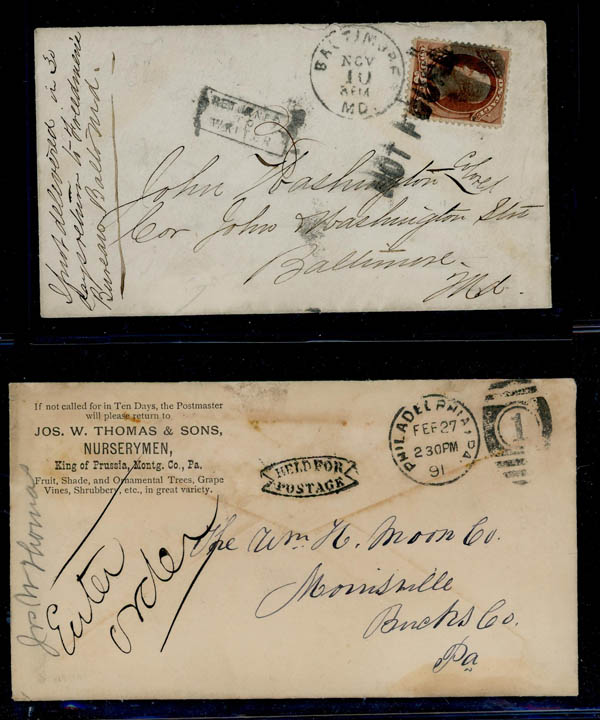 If not delivered in 30
days return to Freedmen's
Bureau, Balto Md.
BALTIMORE
NOV
10
MD.
RETURNED
TO
WRITER
NOT
John Washington
Cor. John & Washington Sts
Baltimore.
Md.
If not called for in Ten Days, the Postmaster
will please return to
JOS. W. THOMAS & SONS,
NURSERYMEN,
King of Prussia, Montg. Co., Pa.
Fruit, Shade, and Ornamental Trees, Grape
Vines, Shrubbery, etc., in great variety.
Jos W Thomas
Enter
order
HELD FOR
POSTAGE
PHILADELPHIA, PA.
FEB 27
2 30 PM
91
1
The Wm. H. Moon Co.
Morrisville
Bucks Co.
Pa